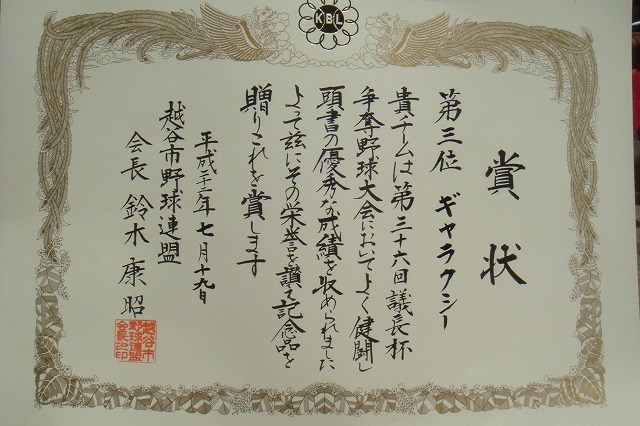 KBL
賞状
第三位 ギャラクシー
貴チームは第三十六回議長杯
争奪野球大会においてよく健闘し
頭書の優秀な成績を収められました
よって茲にその栄誉を讃え記念品を
贈りこれを賞します
平成二十二年七月十九日
越谷市野球連盟
会長 鈴木康昭
越谷市
野球連盟
会長之印